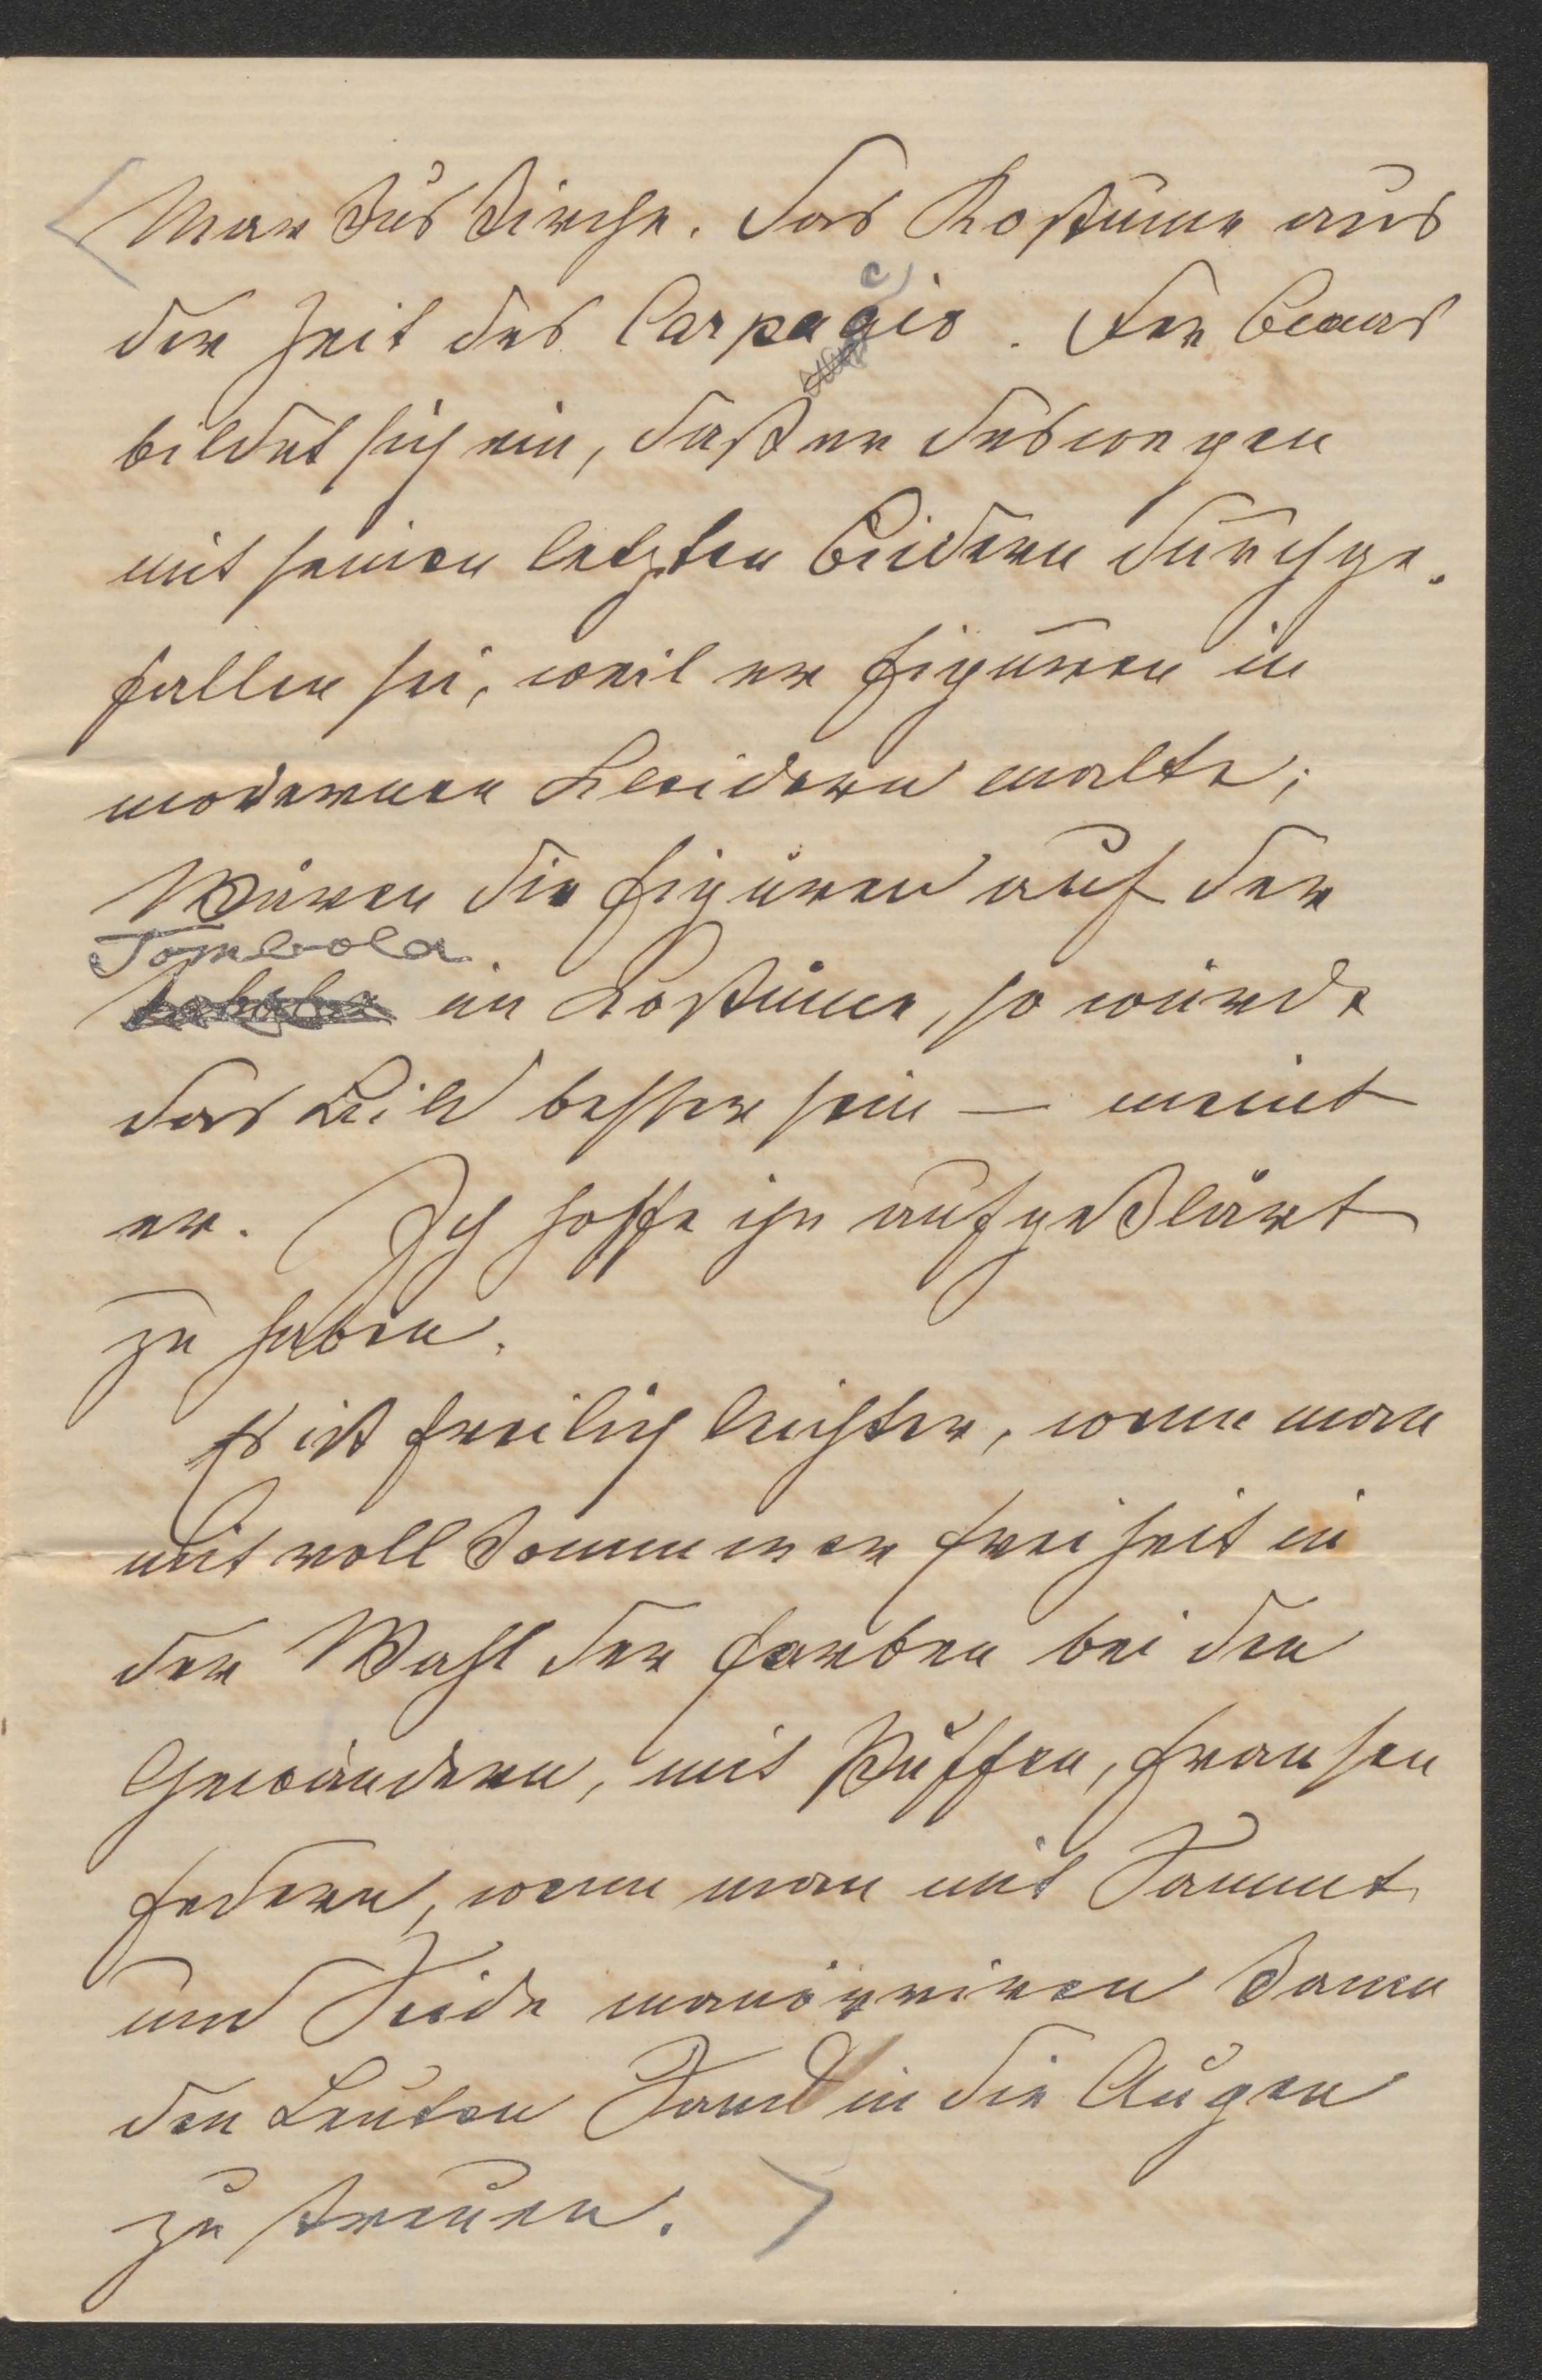 Markus Kirche. Das Kostume aus
der Zeit des Carpacio. Der Blaas
bildet sich ein, daß er deswegen
mit seinen letzten Bildern durchge-
fallen sei, weil er Figuren in
modernen Kleidern malte;
Wären die Figuren auf der
Tombola
in Kostüme, so würde
das Bild besser sein — meint
er. Ich hoffe ihn aufgeklärt
zu haben.
Es ist freilich leichter, wenn man
mit vollkommener Freiheit in
der Wahl der Farben bei den
Gewändern, mit Puffen, Fransen
Federn, wenn man mit Sammt
und Seide manövriren kann
den Leuten Sand in die Augen
zu streuen.